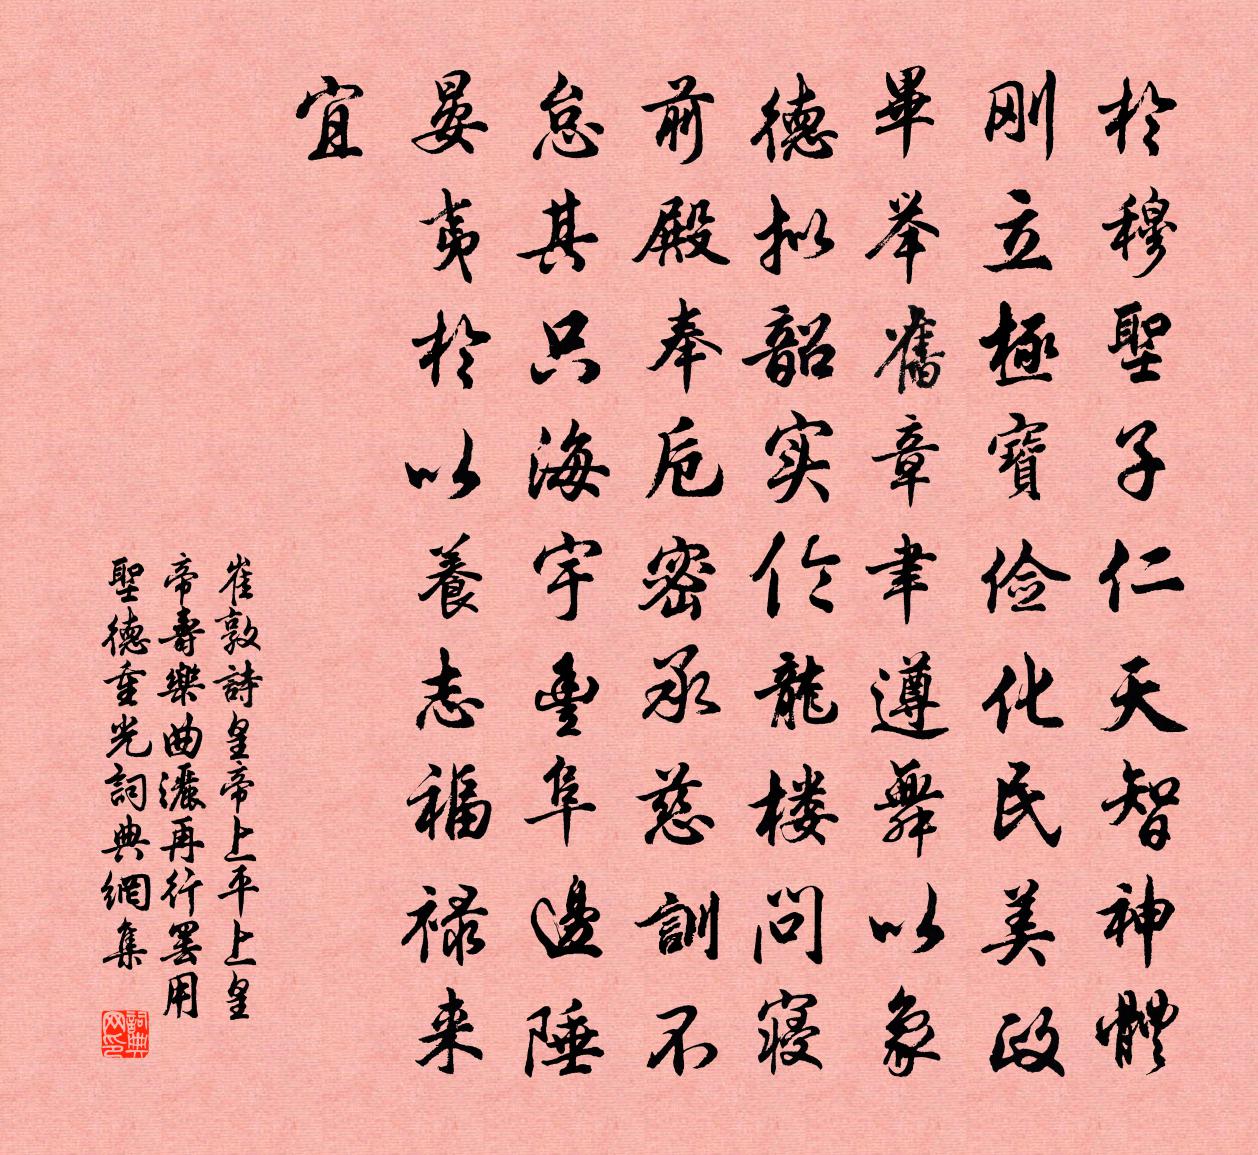 於穆聖子仁天智神體
刚立極寶俭化民美政
畢举舊章聿遵舞以象
德拟韶实伶龍楼问寝
前殿奉卮密承慈訓不
怠其只海宇豊阜邊陲
晏夷於以養志福禄来
宜
崔敦詩皇帝上平上皇
帝壽樂曲灑再行罢用
聖德重光詞典網集
詞典网印